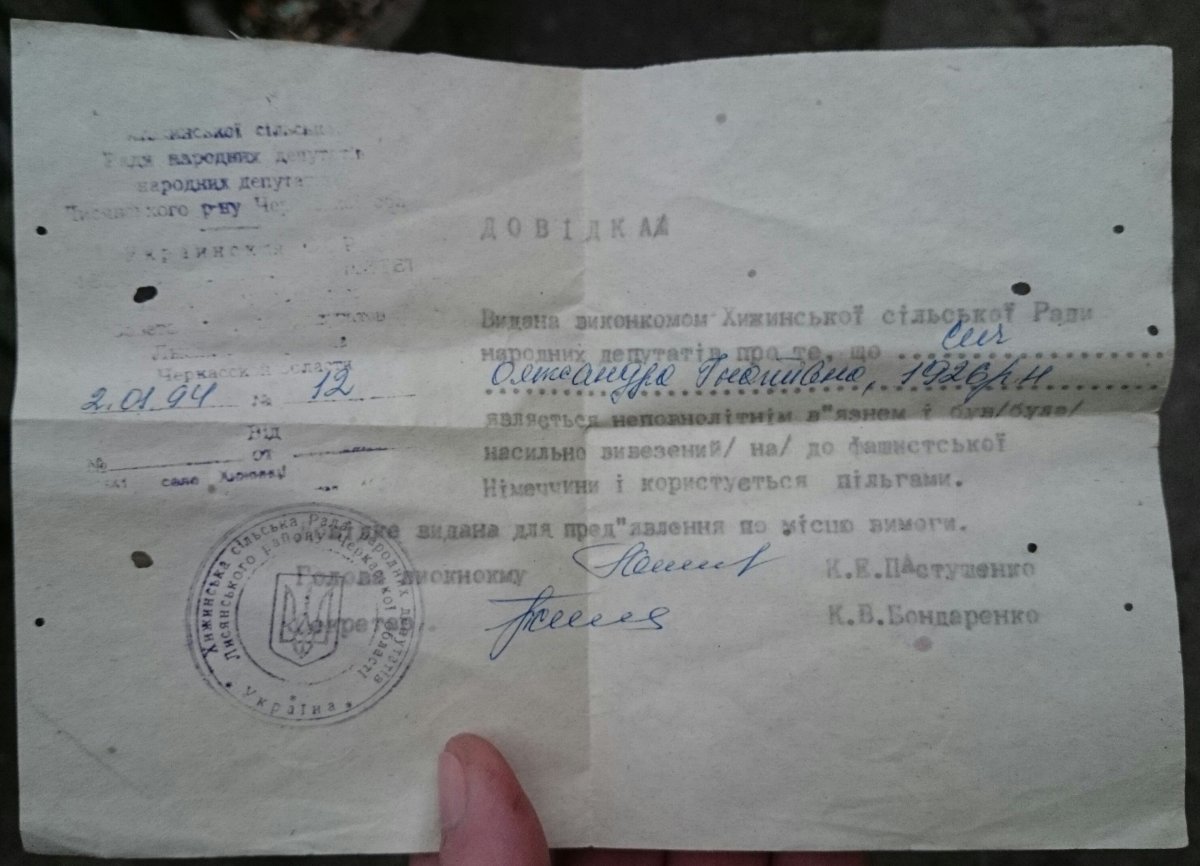 Хижинської сільської
Рада народних депутатів
народних депутатів
Лисянського р-ну
Украинская
Черкасской области
2.01.94 № 12
Від
№ от
село
ДОВІДКА
Видана виконкомом Хижинської сільської Ради
народних депутатів про те, що Сич
Олександра Гнатівна, 1926 р н
являється неповнолітнім в"язнем і був/була/
насильно вивезений/ на/ до фашистської
Німеччини і користується пільгами.
видана для пред"явлення по місцю вимоги.
Голова К.Е.ПАстушенко
Секретар К.В.Бондаренко
Хижинська сільська Рада народних депутатів
Лисянського району Черкаської області
* Україна *